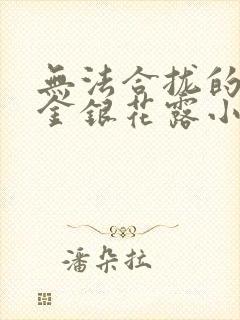 無法合拢的
金銀花露小
潘朵拉